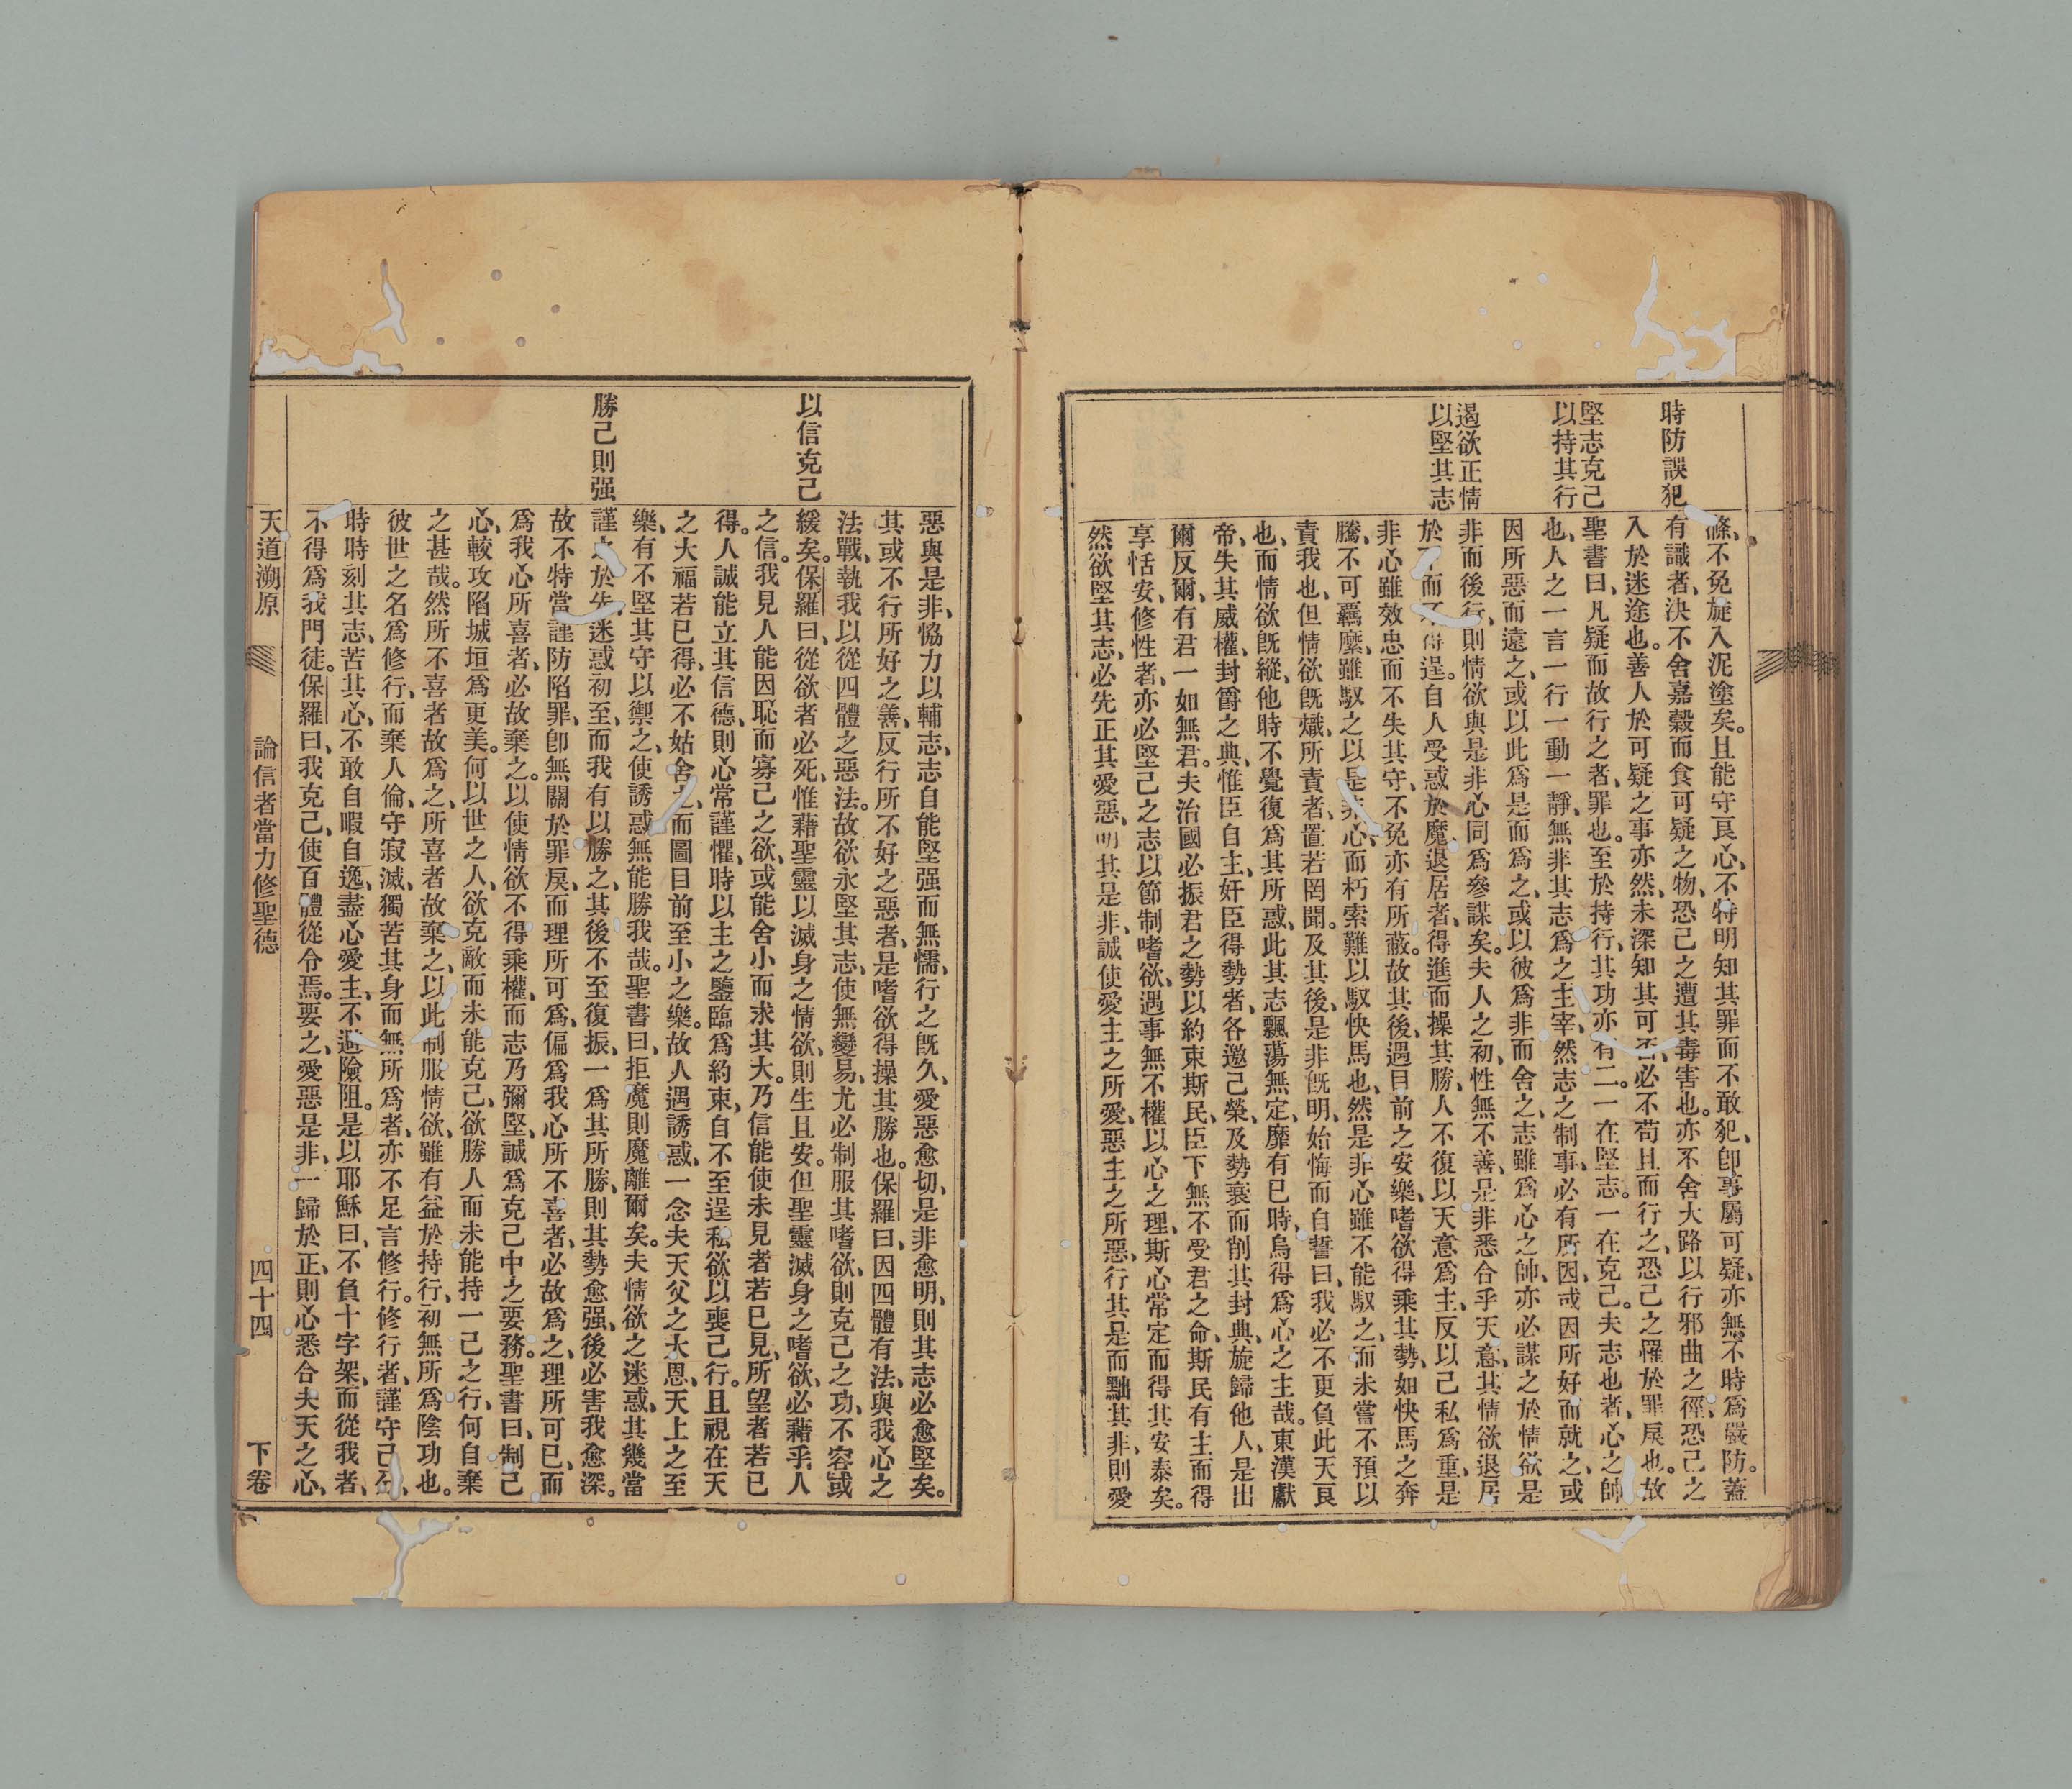 時防誤犯
堅志克己
以持其行
遏欲正情
以堅其志
條、不免旋入泥塗矣。且能守良心、不特明知其罪而不敢犯、卽事屬可疑、亦無不時爲嚴防。蓋
有識者、決不舍嘉穀而食可疑之物、恐己之遭其毒害也。亦不舍大路以行邪曲之徑、恐己之
入於迷途也。善人於可疑之事亦然、未深知其可否、必不苟且而行之、恐己之罹於罪戾也。故
聖書曰、凡疑而故行之者、罪也。至於持行、其功亦有二。一在堅志。一在克己。夫志也者、心之帥
也、人之一言一行一動一靜、無非其志爲之主宰、然志之制事、必有所因、或因所好而就之、或
因所惡而遠之、或以此爲是而爲之、或以彼爲非而舍之、志雖爲心之帥、亦必謀之於情欲是
非而後行、則情欲與是非心同爲參謀矣。夫人之初、性無不善、是非悉合乎天意、其情欲退居
於 而 得逞。自人受惑於魔、退居者、得進而操其勝、人不復以天意爲主、反以己私爲重、是
非心雖效忠而不失其守、不免亦有所蔽。故其後、遇目前之安樂、嗜欲得乘其勢、如快馬之奔
騰、不可羈縻、雖馭之以是非心、而朽索難以馭快馬也、然是非心雖不能馭之、而未嘗不預以
責我也、但情欲旣熾、所責者、置若罔聞。及其後、是非旣明、始悔而自誓曰、我必不更負此天良
也、而情欲旣縱、他時不覺復爲其所惑、此其志飄蕩無定、靡有已時、烏得爲心之主哉。東漢獻
帝、失其威權、封爵之典、惟臣自主、奸臣得勢者、各邀己榮、及勢衰而削其封典、旋歸他人、是出
爾反爾、有君一如無君。夫治國必振君之勢以約束斯民、臣下無不受君之命、斯民有主而得
享恬安、修性者、亦必堅己之志以節制嗜欲、遇事無不權以心之理、斯心常定而得其安泰矣。
然欲堅其志、必先正其愛惡、明其是非、誠使愛主之所愛、惡主之所惡、行其是而黜其非、則愛
以信克己
勝己則强
惡與是非、恊力以輔志、志自能堅强而無懦、行之旣久、愛惡愈切、是非愈明、則其志必愈堅矣。
其或不行所好之善、反行所不好之惡者、是嗜欲得操其勝也。保羅曰、因四體有法、與我心之
法戰、執我以從四體之惡法。故欲永堅其志、使無變易、尤必制服其嗜欲、則克己之功、不容或
緩矣。保羅曰、從欲者必死、惟藉聖靈以滅身之情欲、則生且安。但聖靈滅身之嗜欲、必藉乎人
之信。我見人能因恥而寡己之欲、或能舍小而求其大。乃信能使未見者若已見、所望者若已
得。人誠能立其信德、則心常謹懼、時以主之鑒臨爲約束、自不至逞私欲以喪己行。且視在天
之大福若已得、必不姑舍之、而圖目前至小之樂。故人遇誘惑、一念夫天父之大恩、天上之至
樂、有不堅其守以禦之、使誘惑無能勝我哉。聖書曰、拒魔則魔離爾矣。夫情欲之迷惑、其幾當
謹之於先、迷惑初至、而我有以勝之、其後不至復振、一爲其所勝、則其勢愈强、後必害我愈深。
故不特當謹防陷罪、卽無關於罪戾、而理所可爲、偏爲我心所不喜者、必故爲之、理所可已、而
爲我心所喜者、必故棄之。以使情欲不得乘權、而志乃彌堅、誠爲克己中之要務。聖書曰、制己
心、較攻陷城垣爲更美。何以世之人、欲克敵而未能克己、欲勝人而未能持一己之行、何自棄
之甚哉。然所不喜者故爲之、所喜者故棄之、以此制服情欲、雖有益於持行、初無所爲陰功也。
彼世之名爲修行、而棄人倫、守寂滅、獨苦其身而無所爲者、亦不足言修行。修行者、謹守己分、
時時刻其志、苦其心、不敢自暇自逸、盡心愛主、不避險阻。是以耶穌曰、不負十字架、而從我者、
不得爲我門徒。保羅曰、我克己、使百體從令焉。要之、愛惡是非、一歸於正、則心悉合夫天之心、
天道溯原 論信者當力修聖德 四十四 下卷